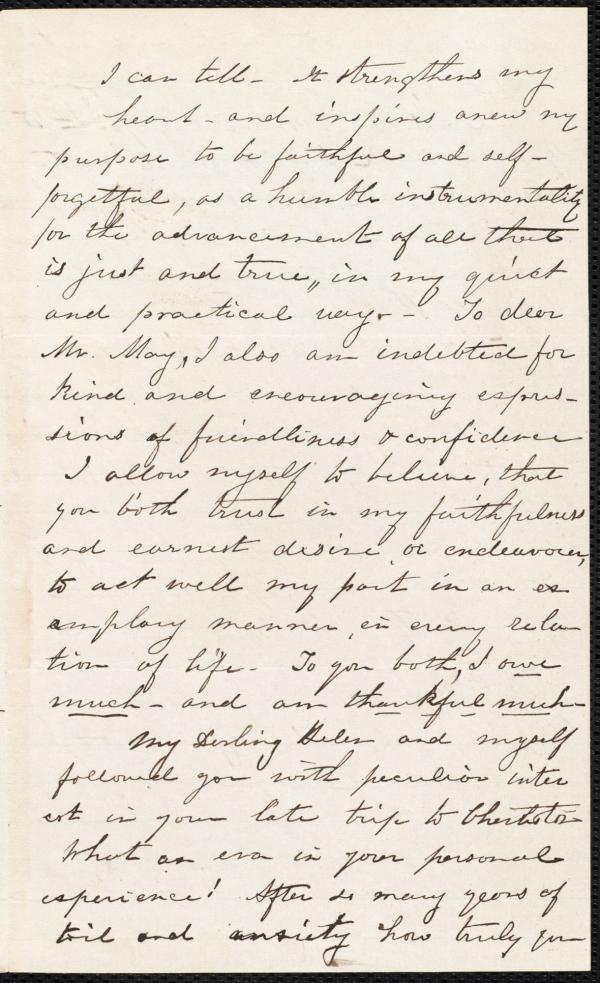 I can tell - It strengthens my
heart - and inspires anew my
purpose to be faithful and self-
forgetful, as a humble instrumentality
for the advancement of all that
is just and true, in my quiet
and practical way. - To dear
Mr. May, I also am indebted for
kind and encouraging expres-
sions of friendliness & confidence
I allow myself to believe, that
you both trust in my faithfulness
and earnest desire, or endeavour,
to act well my part in an ex
emplary manner, in every rela-
tion of life - To you both, I owe
much - and am thankful much -
My Darling Helen and myself
followed you with peculiar inter
est in your late trip to Charleston
What an era in your personal
experience! After so many years of
toil and anxiety how truly you